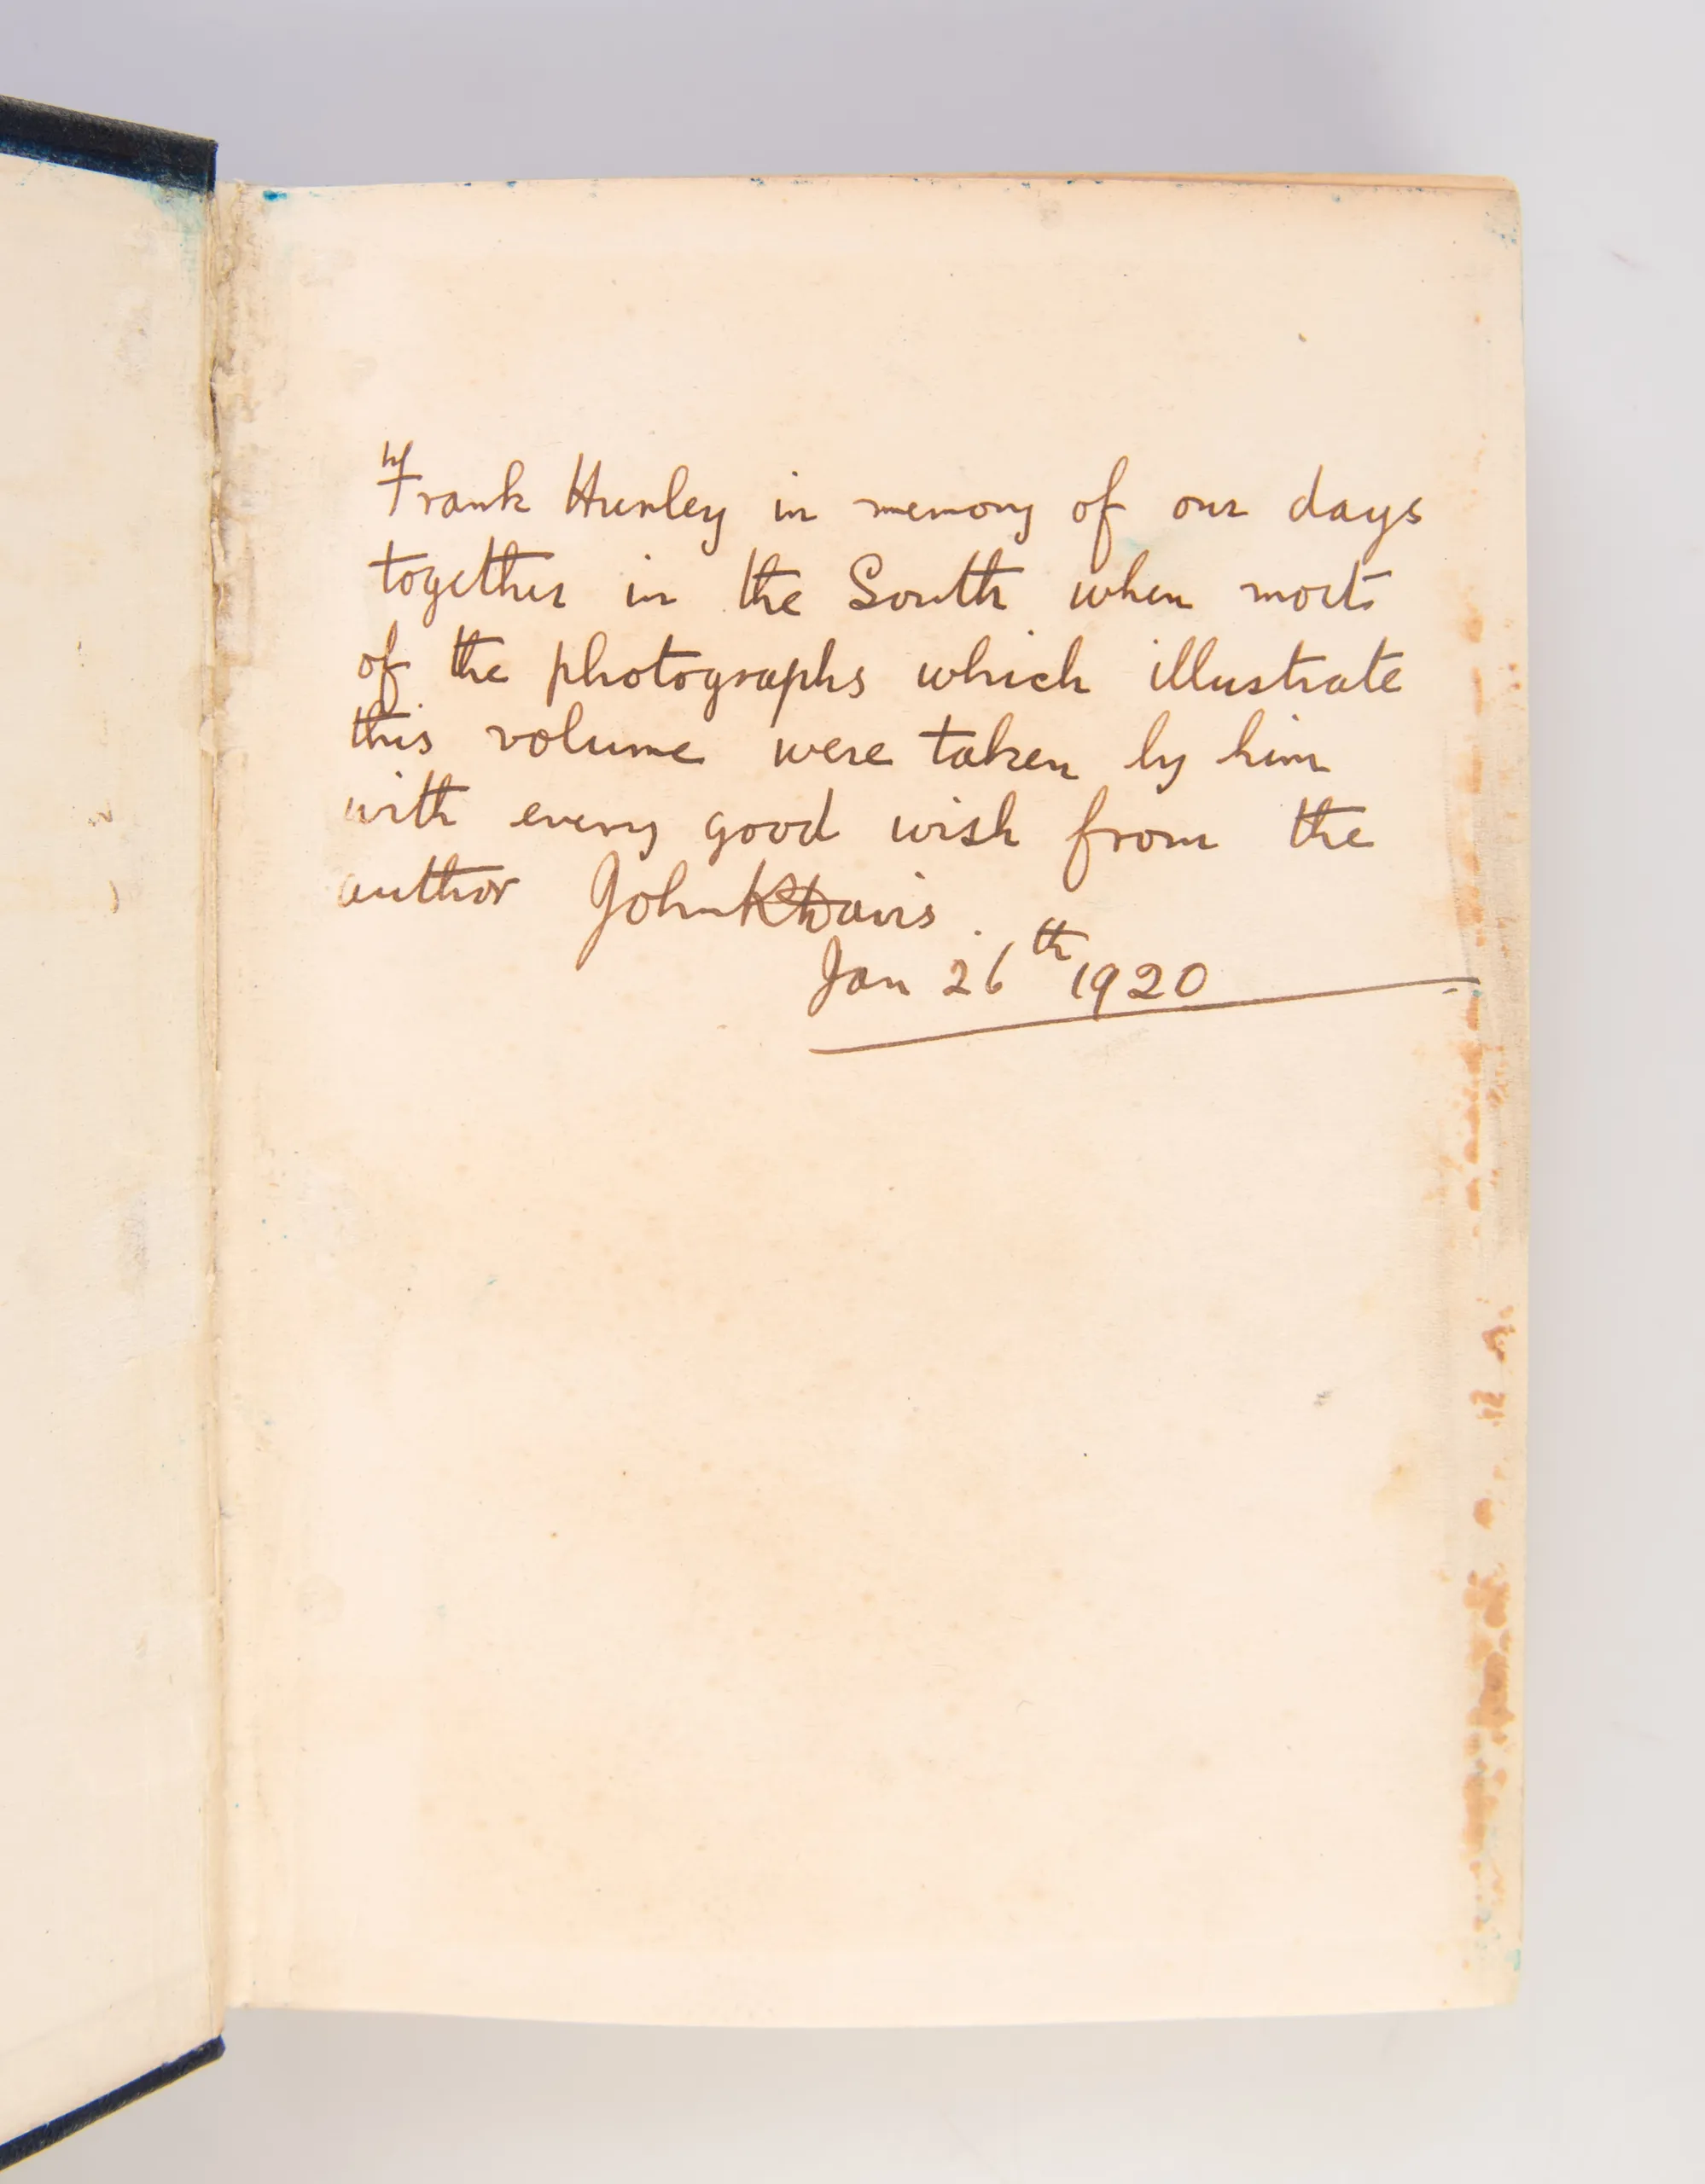 Frank Hurley in memory of our days
together in the South when most
of the photographs which illustrate
this volume were taken by him
with every good wish from the
author John K Davis.
Jan 26th 1920